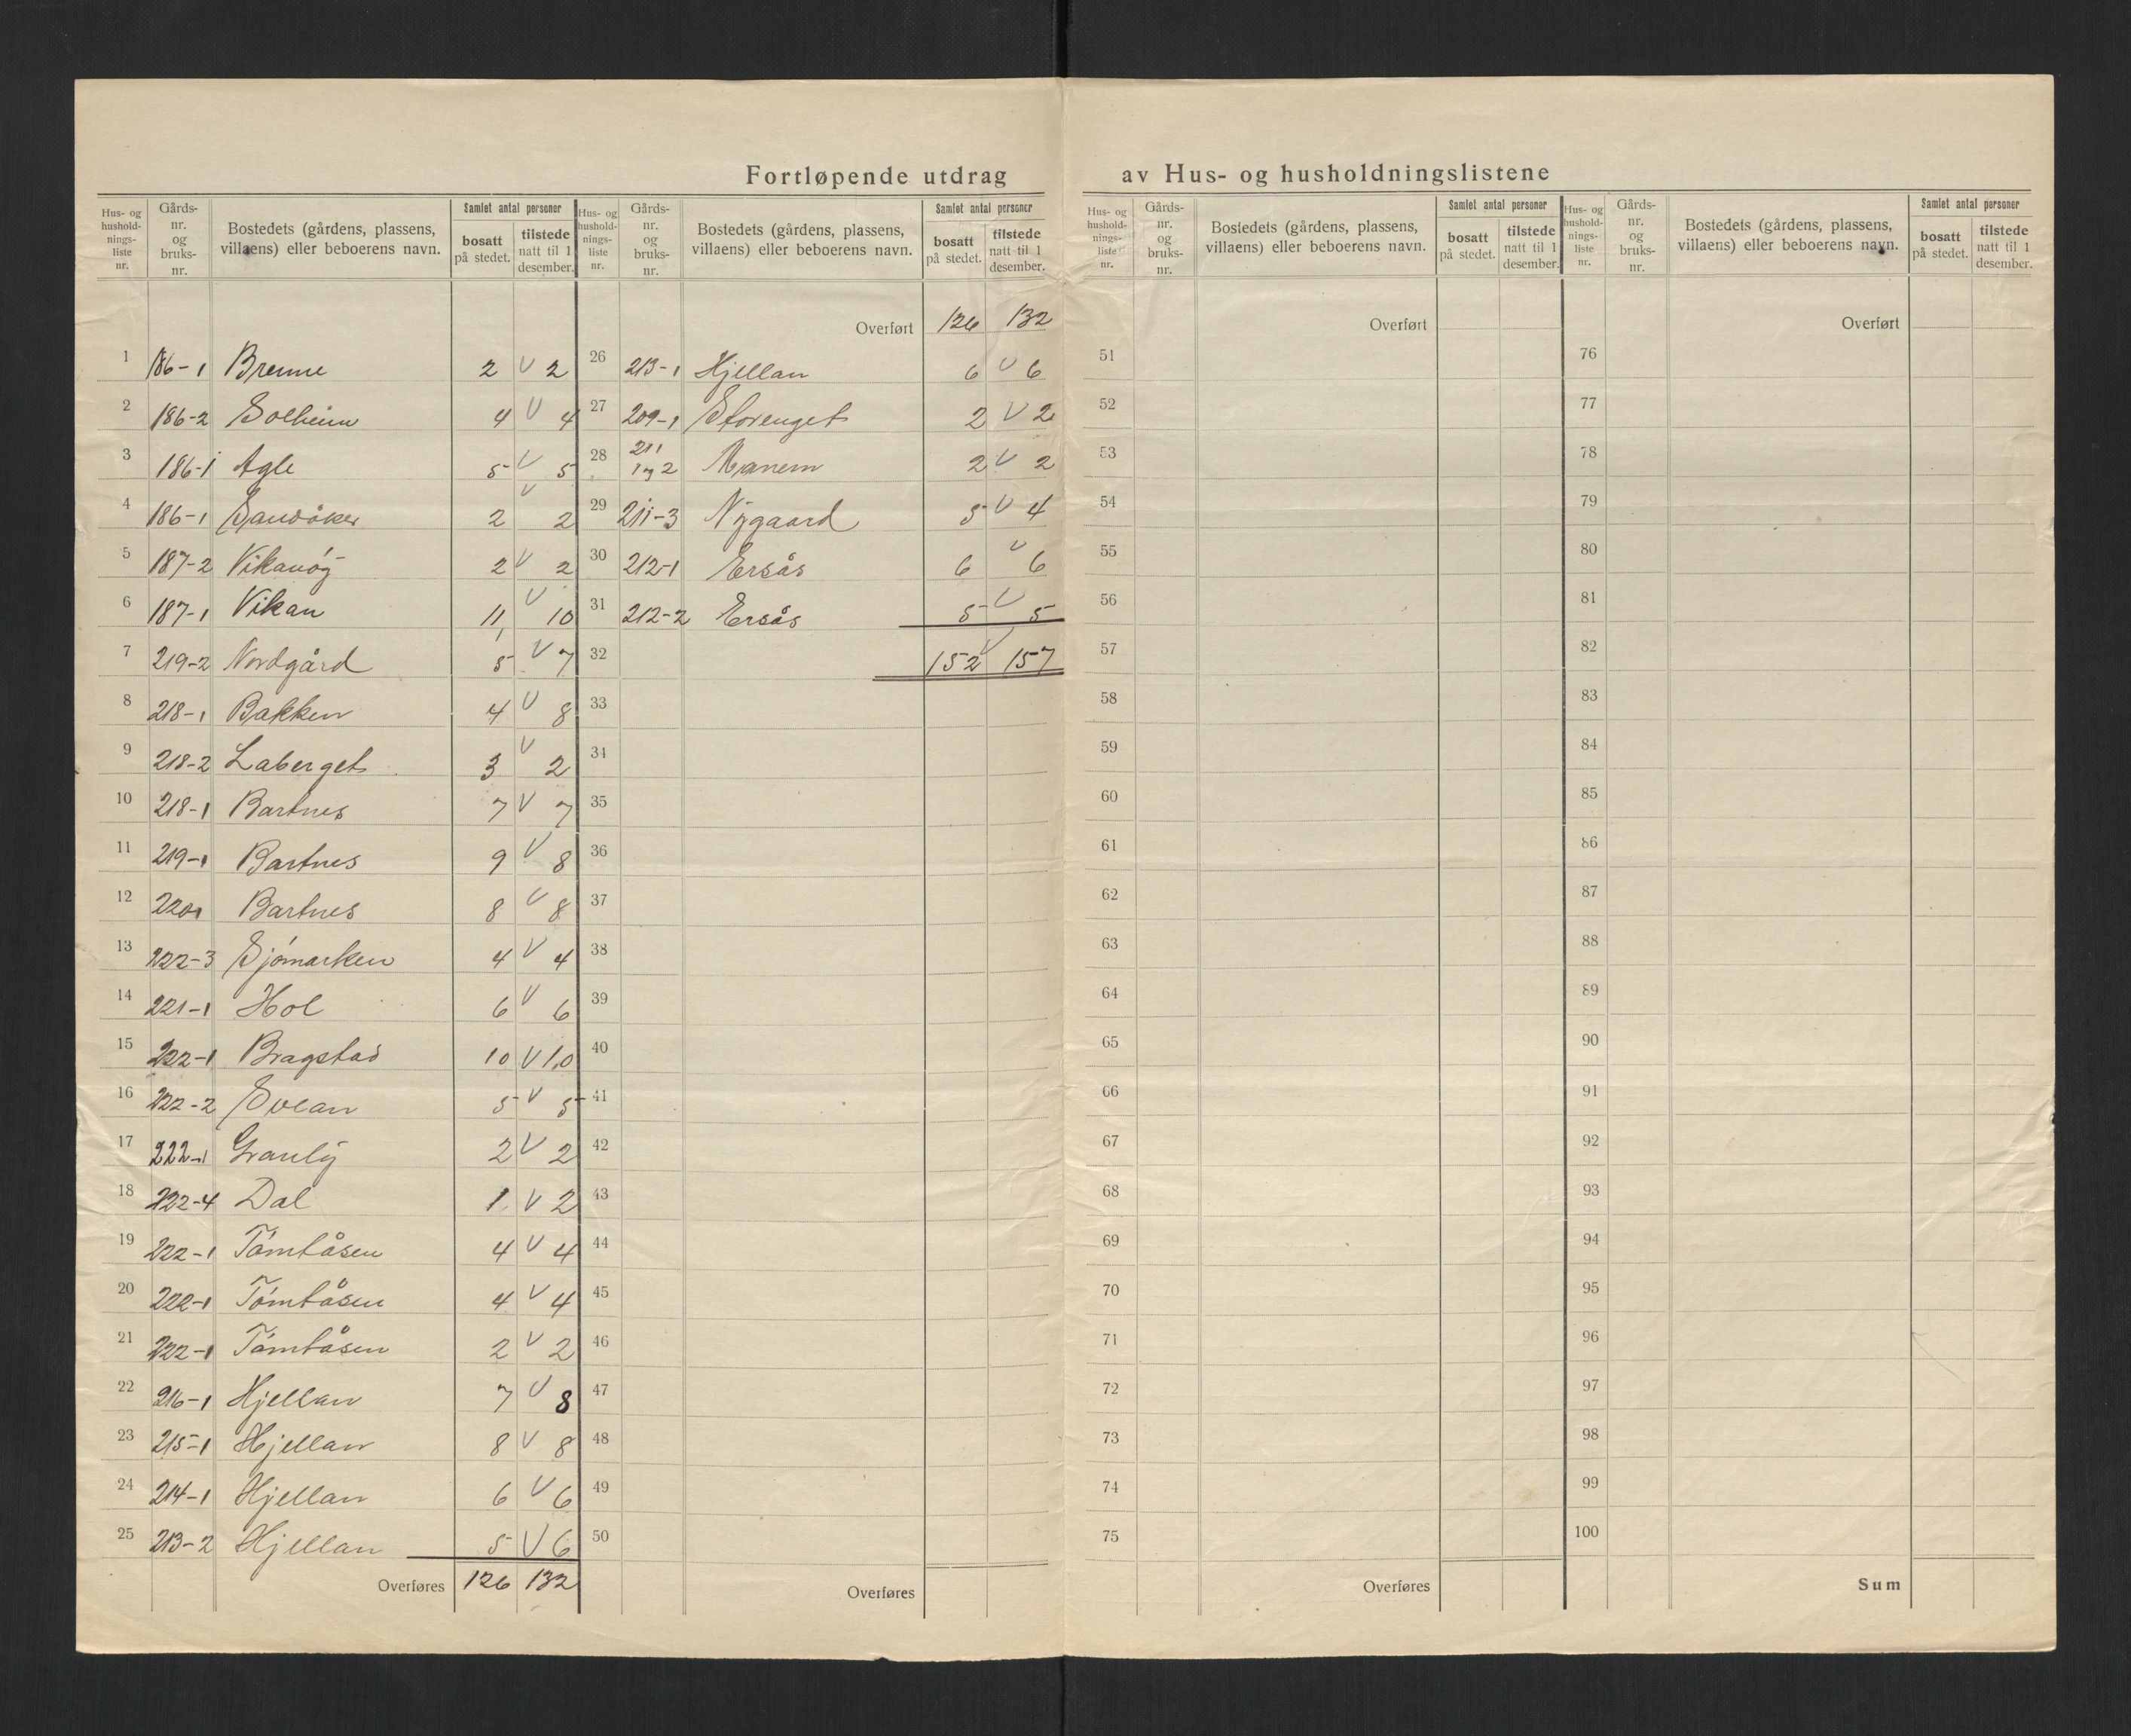 Fortløpende utdrag av Hus- og husholdningslistene
Hus- og husholdningsliste nr. Gårdsnr. og bruksnr. Bostedets (gårdens, plassens, villaens) eller beboerens navn. Samlet antal personer bosatt på stedet. tilstede natt til 1 desember.
1 186-1 Brenne 2 V 2
2 186-2 Solheim 4 V 4
3 186-1 Agle 5 V 5
4 186-1 Sandåker 2 V 2
5 187-2 2 V 2
6 187-1 Vikan 11 V 10
7 219-2 Nordgård 5 V 7
8 218-1 Bakken 4 V 8
9 218-2 Laberget 3 V 2
10 218-1 Bartnes 7 V 7
11 219-1 Bartnes 9 V 8
12 220 1 Bartnes 8 V 8
13 222-3 Sjømarken 4 V 4
14 221-1 Hol 6 V 6
15 222-1 Bragstad 10 V 10
16 222-2 Svean 5 V 5
17 222-1 Granly 2 V 2
18 222-4 Dal 1 V 2
19 222-1 Tømtåsen 4 V 4
20 222-1 Tømtåsen 4 V 4
21 222-1 Tømtåsen 2 V 2
22 216-1 Hjellan 7 V 8
23 215-1 Hjellan 8 V 8
24 214-1 Hjellan 6 V 6
25 213-2 Hjellan 5 V 6
Overføres 126 132
Hus- og husholdningsliste nr. Gårdsnr. og bruksnr. Bostedets (gårdens, plassens, villaens) eller beboerens navn. Samlet antal personer bosatt på stedet. tilstede natt til 1 desember.
Overført 126 132
26 213-1 Hjellan 6 V 6
27 209-1 Storenget 2 V 2
28 211 1 og 2 Manem 2 V 2
29 211-3 Nygaard 5 V 4
30 212-1 Ersås 6 V 6
31 212-2 Ersås 5 V 5
32 152 V 157
33
34
35
36
37
38
39
40
41
42
43
44
45
46
47
48
49
50
Overføres
Hus- og husholdningsliste nr. Gårdsnr. og bruksnr. Bostedets (gårdens, plassens, villaens) eller beboerens navn. Samlet antal personer bosatt på stedet. tilstede natt til 1 desember.
Overført
51
52
53
54
55
56
57
58
59
60
61
62
63
64
65
66
67
68
69
70
71
72
73
74
75
Overføres
Hus- og husholdningsliste nr. Gårdsnr. og bruksnr. Bostedets (gårdens, plassens, villaens) eller beboerens navn. Samlet antal personer bosatt på stedet. tilstede natt til 1 desember.
Overført
76
77
78
79
80
81
82
83
84
85
86
87
88
89
90
91
92
93
94
95
96
97
98
99
100
Sum